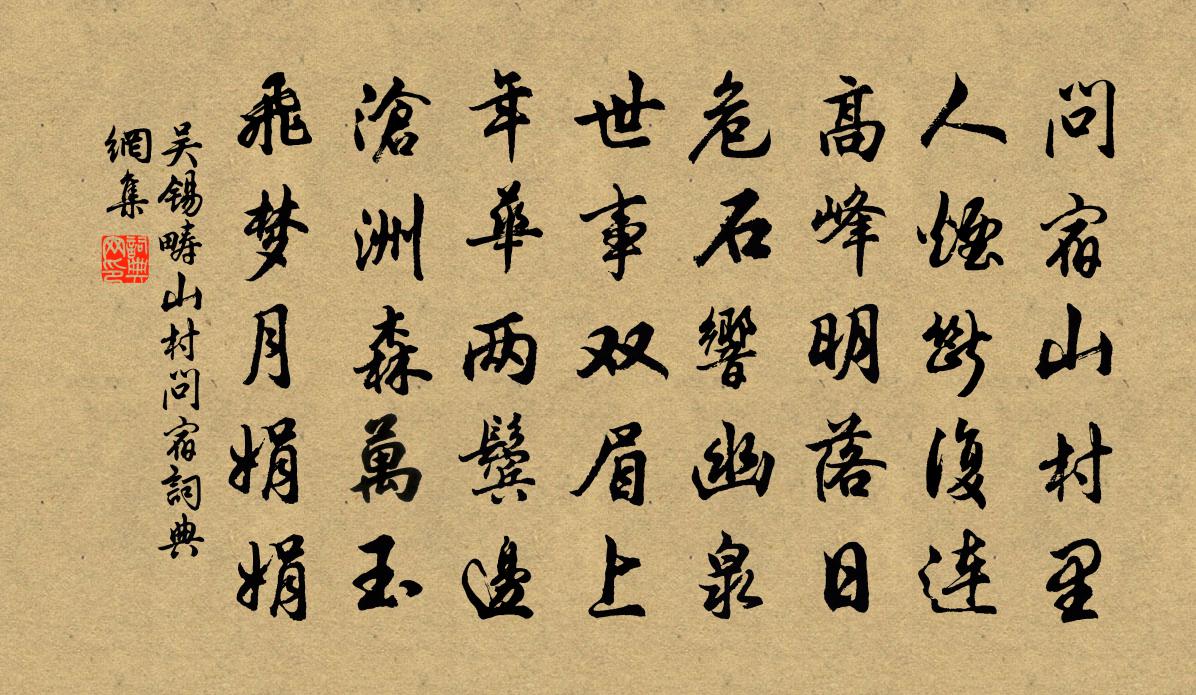 问宿山村里
人烟断复连
高峰明落日
危石響幽泉
世事双眉上
年華两鬓邊
滄洲森萬玉
飛梦月娟娟
吴锡畴山村问宿詞典
網集
詞典网印